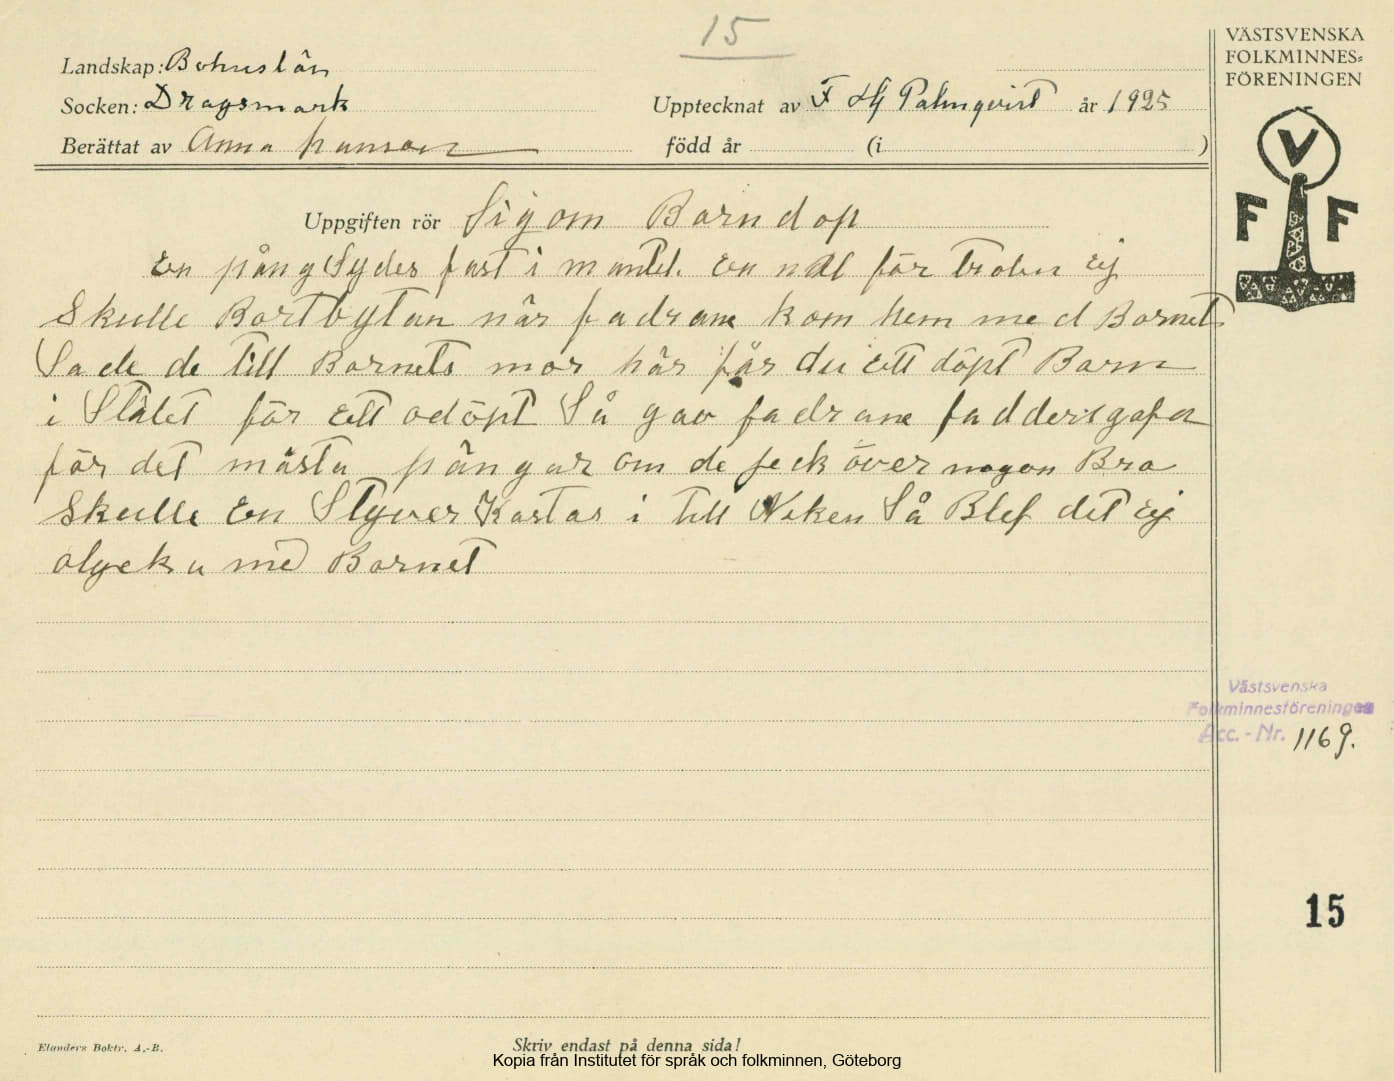 15
VÄSTSVENSKA
FOLKMINNES=
FÖRENINGEN
Landskap: Bohuslän
Socken: Dragsmark
Upptecknat av F Hj Palmqvist år 1925
Berättat av Anna Hanson
född år (i )
V
F F
Uppgiften rör Sigom Barndop
En pång Sydes fast i mantel. En nål för trolen Ej
Skulle Bortbytan när fadrane kom hem med Barnet
Sade de till Barnets mor här får du Ett döpt Barn
i Stället för Ett odöpt Så gav fadrane faddersgafva
för det mästa pängar om de feck över nogon Bro
Skulle En Styver Kastas i till Neken Så Blef det Ej
olycka med Barnet
Västsvenska
Folkminnesföreningen
Acc.-Nr. 1169.
15
Elanders Boktr. A.-B.
Skriv endast på denna sida!
Kopia från Institutet för språk och folkminnen, Göteborg